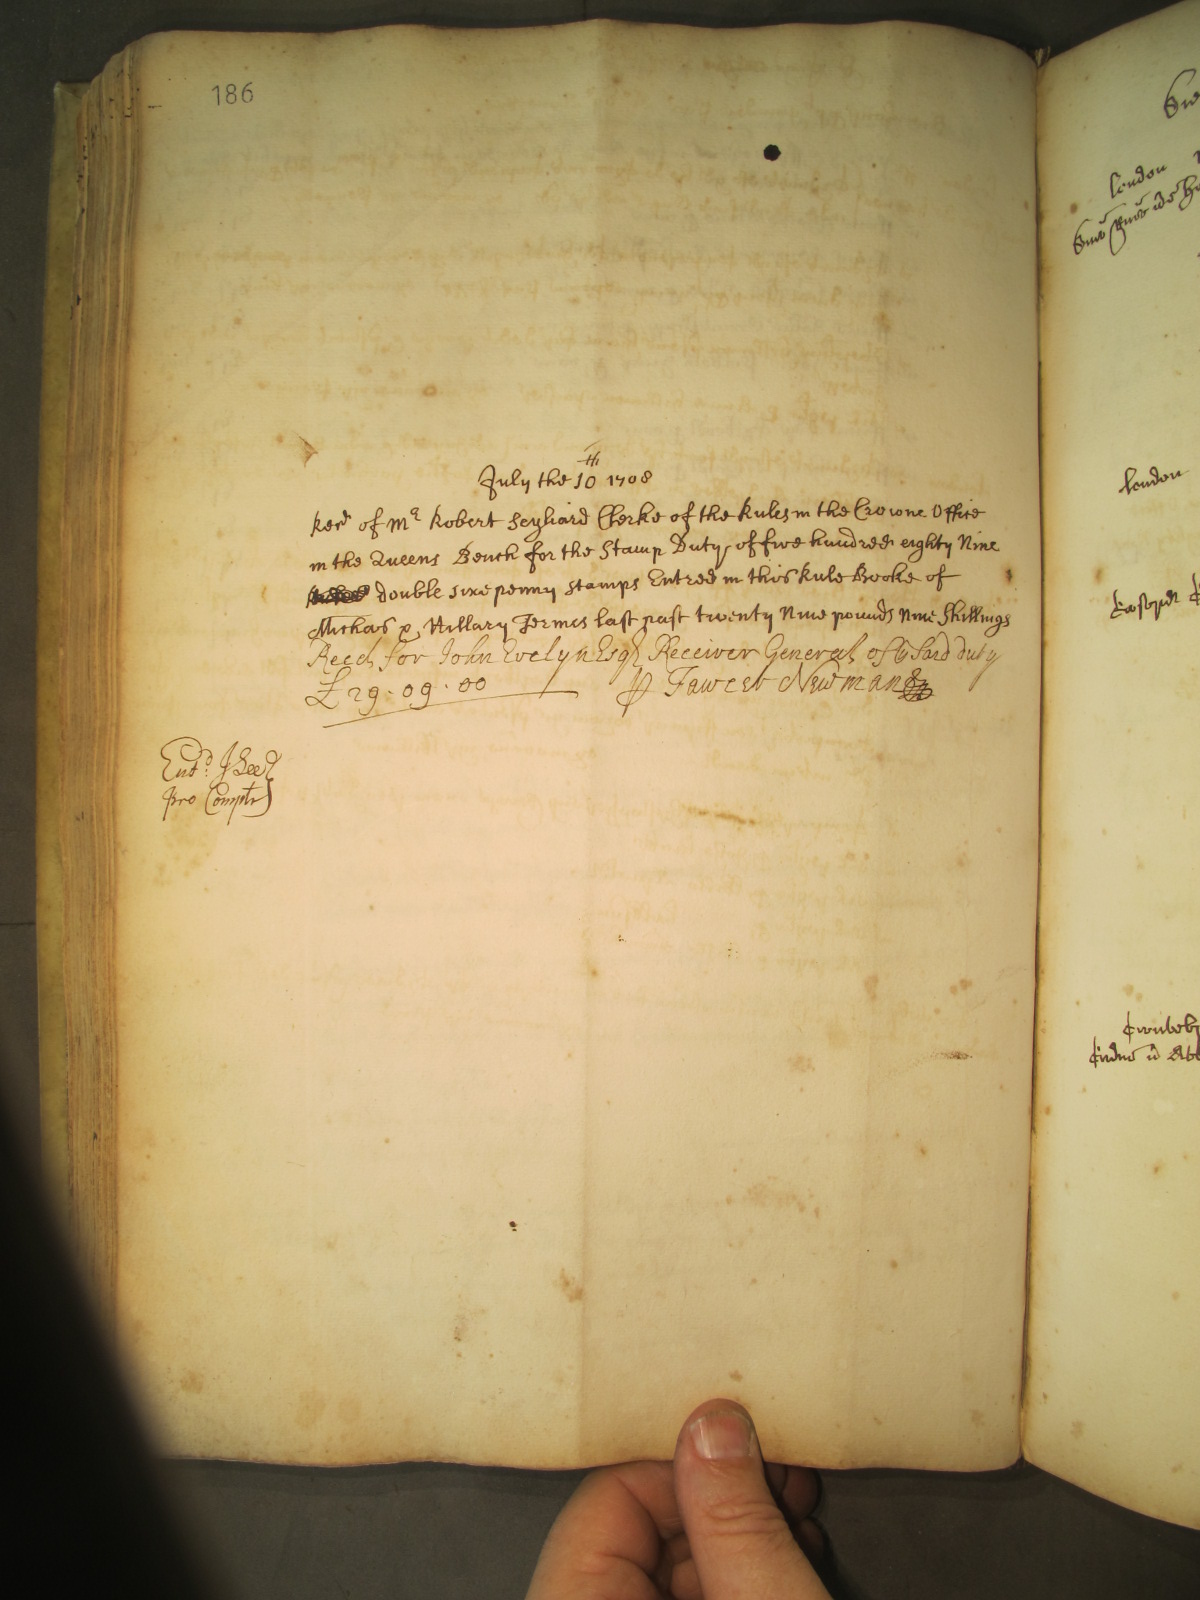 186
July the 10th 1708
Recd of Mr Robert Seyliard Clerke of the Rules in the Crowne Office
in the Queens Bench for the Stamp Duty of five hundred eighty Nine
double sixe penny stamps Entred in this Rule Booke of
Michas & Hillary Termes last past twenty Nine pounds Nine Shillings
Recd for John Evelyn Esqr Receiver General of ye said duty
£ 29 . 09 . 00 P Fawcet Newman
Entd: J Lee
pro Comptr
London
London